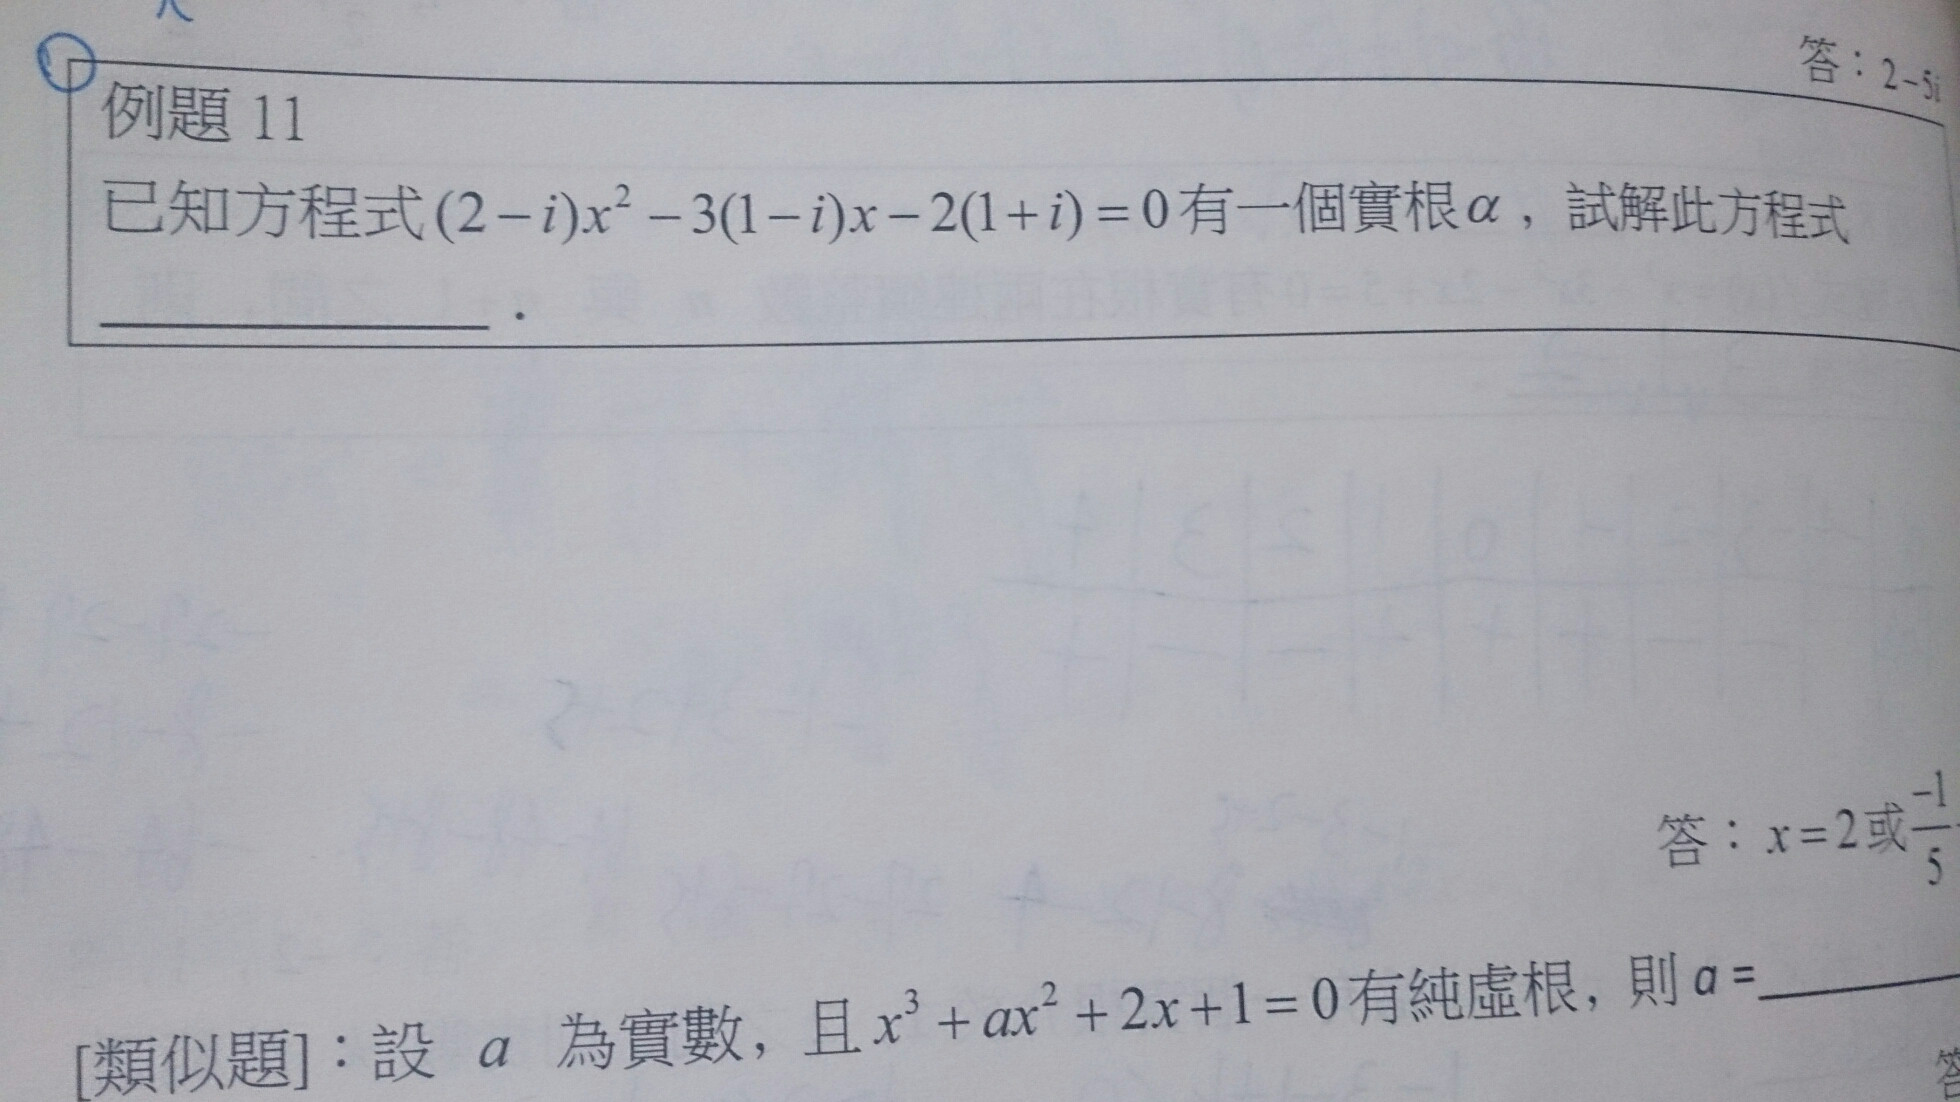 答：2-5i
例題 11
已知方程式(2-i)x²-3(1-i)x-2(1+i)=0有一個實根α，試解此方程式
________．
答：x=2或-1/5
[類似題]：設 a 為實數，且x³+ax²+2x+1=0有純虛根，則a=______
答